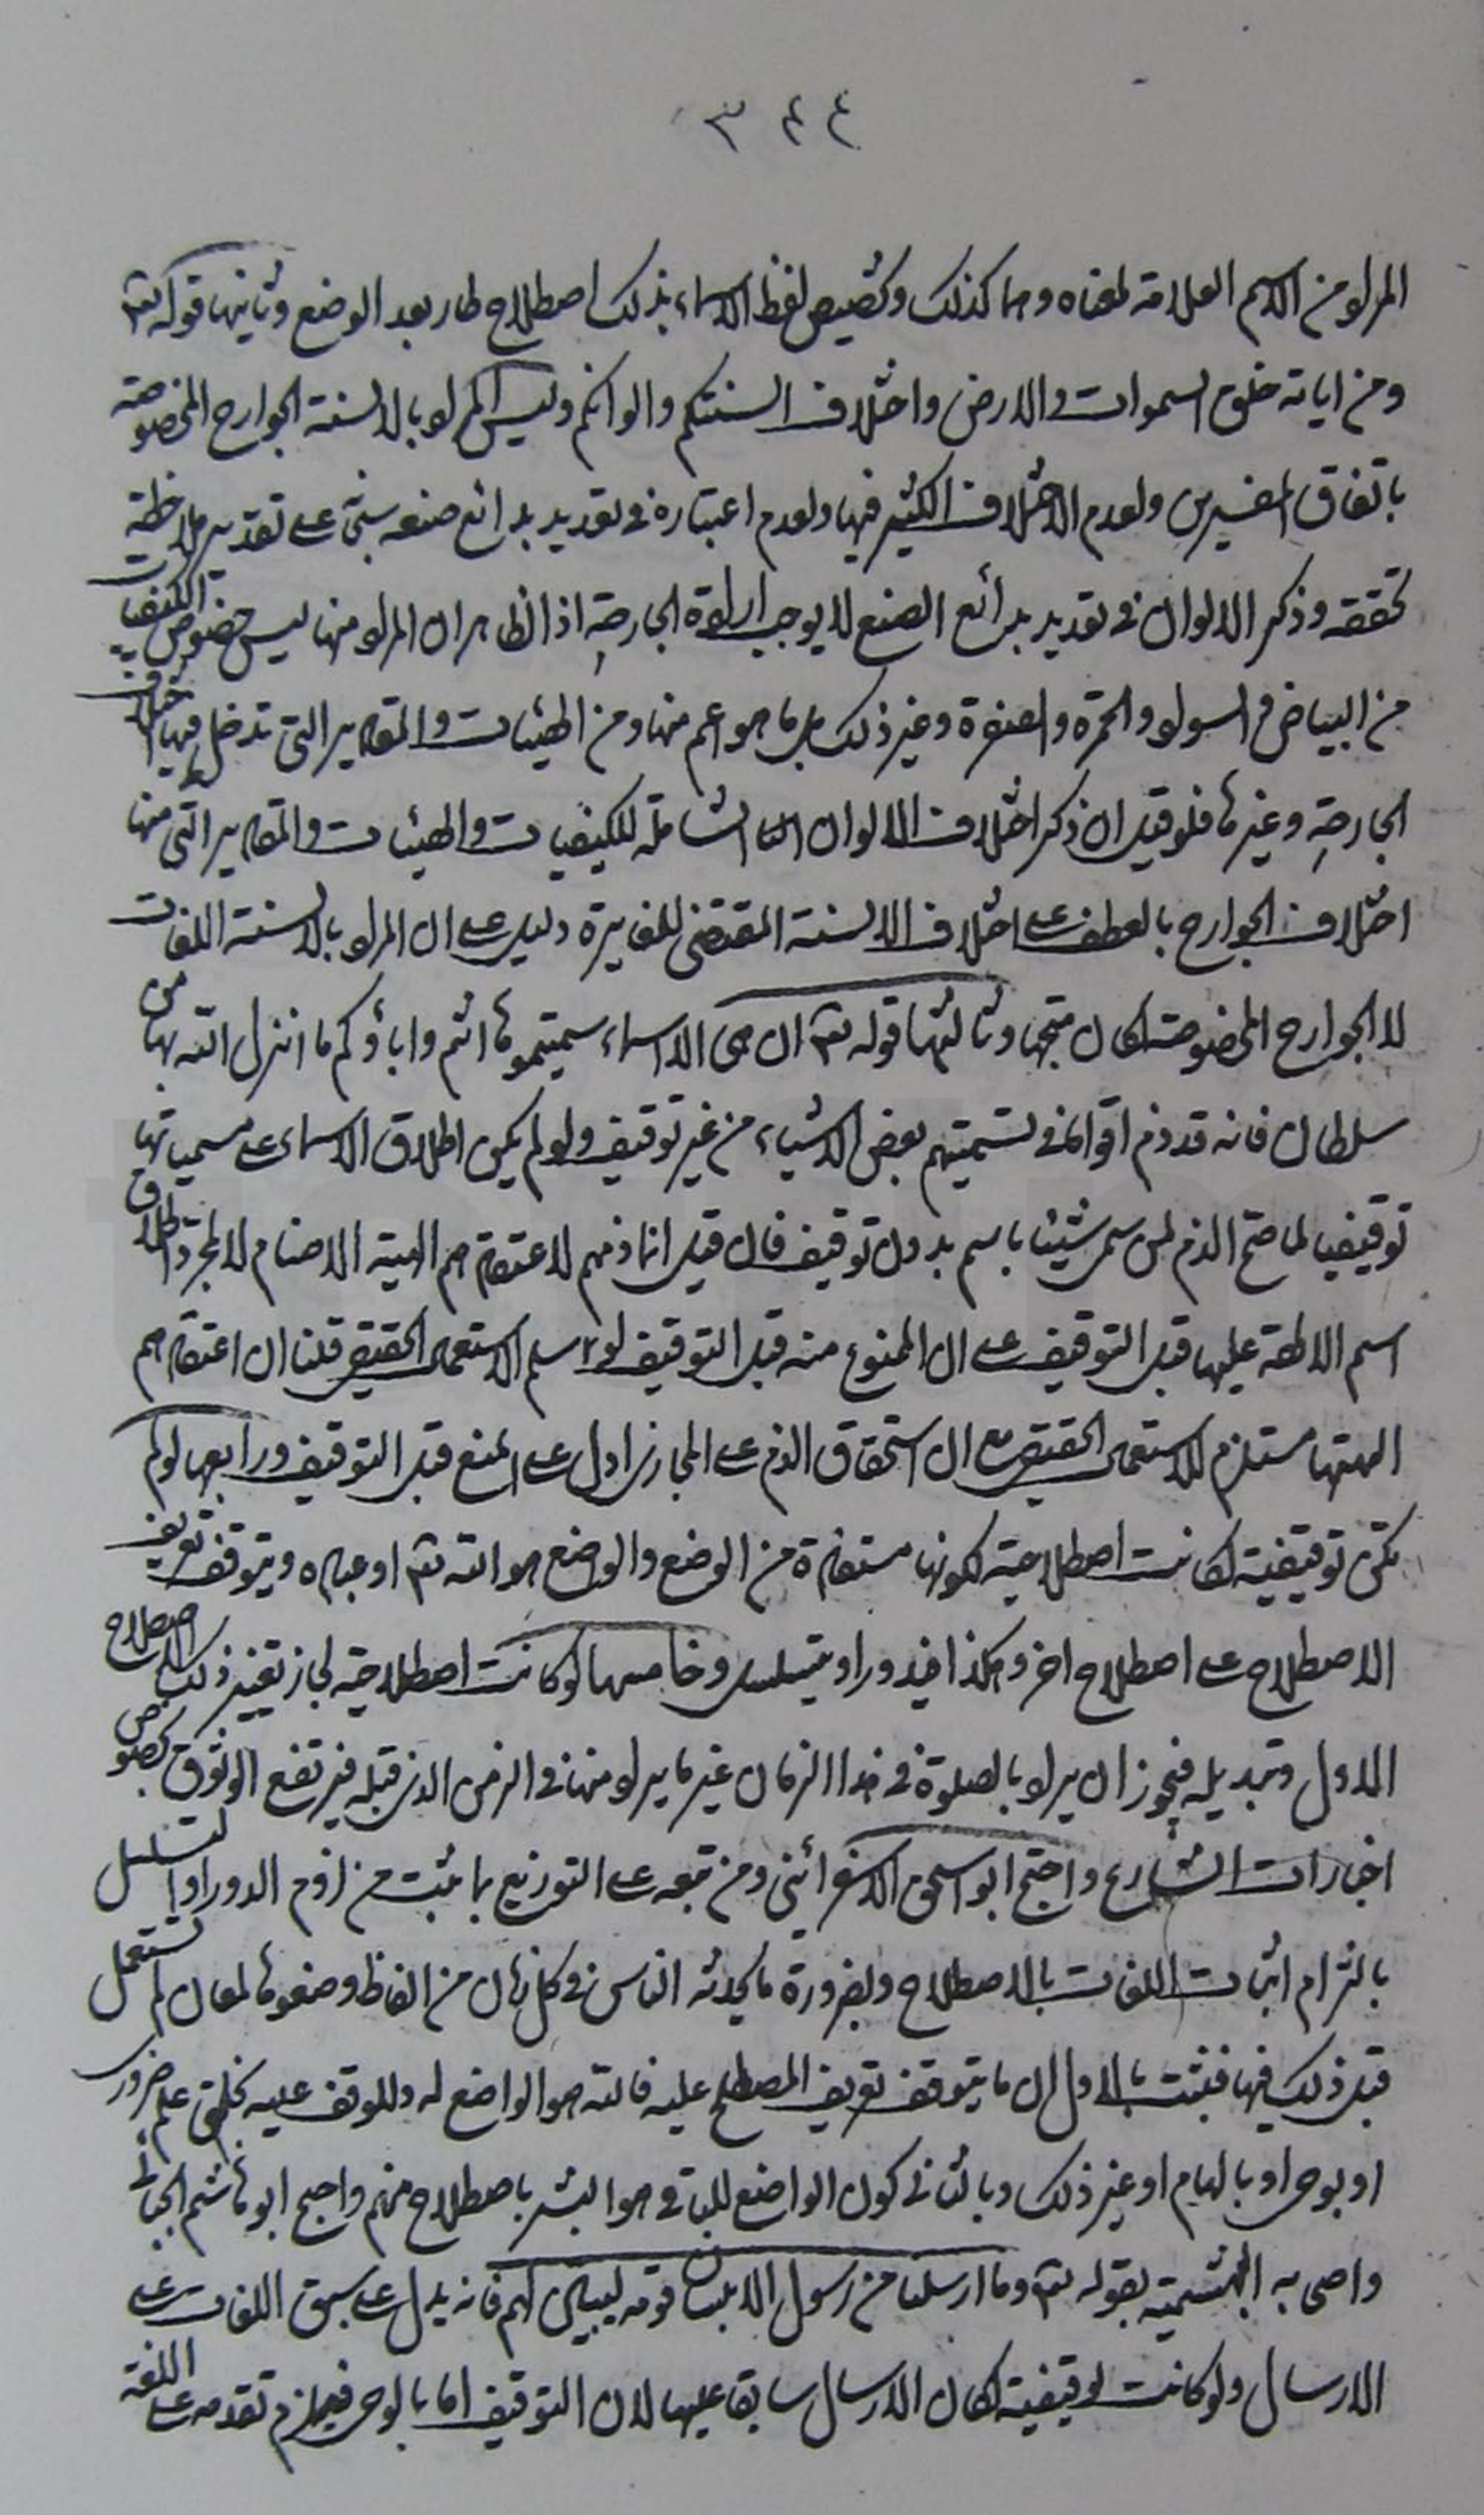 ٣٤٤
المراد من الاسم العلامة لمعناه وهما كذلك وتخصيص لفظ الاسماء بذلك اصطلاح طار بعد الوضع وثانيها قوله تع
ومن اياته خلق السموات والارض واختلاف السنتكم والوانكم وليس المراد بالالسنة الجوارح المخصوصة
باتفاق المفسرين ولعدم الاختلاف الكثير فيها ولعدم اعتباره في تعديد بدائع صنعه سيّما على تقدير ملاحظة
تحققه وذكر الالوان في تعديد بدائع الصنع لا يوجب ارادة الجارحة اذ الظاهر ان المراد منها ليس خصوص الكيفيات
من البياض والسواد والحمرة والصفرة وغير ذلك بل ما هو اعم منها ومن الهيئات والمقادير التي تدخل فيها اختلاف
الجارحة وغيرها فلو قيل ان ذكر اختلاف الالوان الشاملة للكيفيات والهيئات والمقادير التي منها
اختلاف الجوارح بالعطف على اختلاف الالسنة المقتضي للمغايرة دليل على ان المراد بالالسنة اللغات
لا الجوارح المخصوصة لكان متجها وثالثها قوله تع ان هي الا اسماء سميتموها انتم واباؤكم ما انزل الله بها من
سلطان فانه قد ذم اقواما في تسميتهم بعض الاشياء من غير توقيف ولو لم يكن اطلاق الاسماء على مسمياتها
توقيفيا لما صح الذم لمن سمى شيئا باسم بدون توقيف فان قيل انما ذمهم لاعتقادهم الهية الاصنام لا لمجرد اطلاق
اسم الالهة عليها قبل التوقيف على ان الممنوع منه قبل التوقيف لو سلم الاستعمال الحقيقي قلنا ان اعتقادهم
الهتها مستلزم للاستعمال الحقيقي مع ان استحقاق الذم على المجاز ادل على المنع قبل التوقيف ورابعها لو لم
تكن توقيفية لكانت اصطلاحية لكونها مستفادة من الوضع والواضع هو الله تع او عباده ويتوقف تعريف
الاصطلاح على اصطلاح اخر وهكذا فيدور او يتسلسل وخامسها لو كانت اصطلاحية لجاز تغيير ذلك الاصطلاح
الاول وتبديله فيجوز ان يراد بالصلوة في هذا الزمان غير ما يراد منها في الزمن الذي قبله فيرتفع الوثوق بخصوص
اخبارات الشارع واحتج ابو اسحق الاسفرائني ومن تبعه على التوزيع بما ثبت من لزوم الدور او التسلسل
بالتزام اثبات اللغات بالاصطلاح وبضرورة ما يحدثه الناس في كل زمان من الفاظ وضعوها لمعان لم تستعمل
قبل ذلك فيها فيثبت بالاول ان ما يتوقف تعريف المصطلح عليه فالله هو الواضع له وللوقف عليه بخلق علم ضرورى
او بوحى او بالهام او غير ذلك وبالثانى كون الواضع للباقى هو البشر باصطلاح منهم واحتج ابو هاشم الجبائى
واصحابه البهشمية بقوله تع وما ارسلنا من رسول الا بلسان قومه ليبين لهم فانه يدل على سبق اللغات على
الارسال ولو كانت توقيفية لكان الارسال سابقا عليها لان التوقيف اما بالوحى فيلزم تقدمه على اللغة